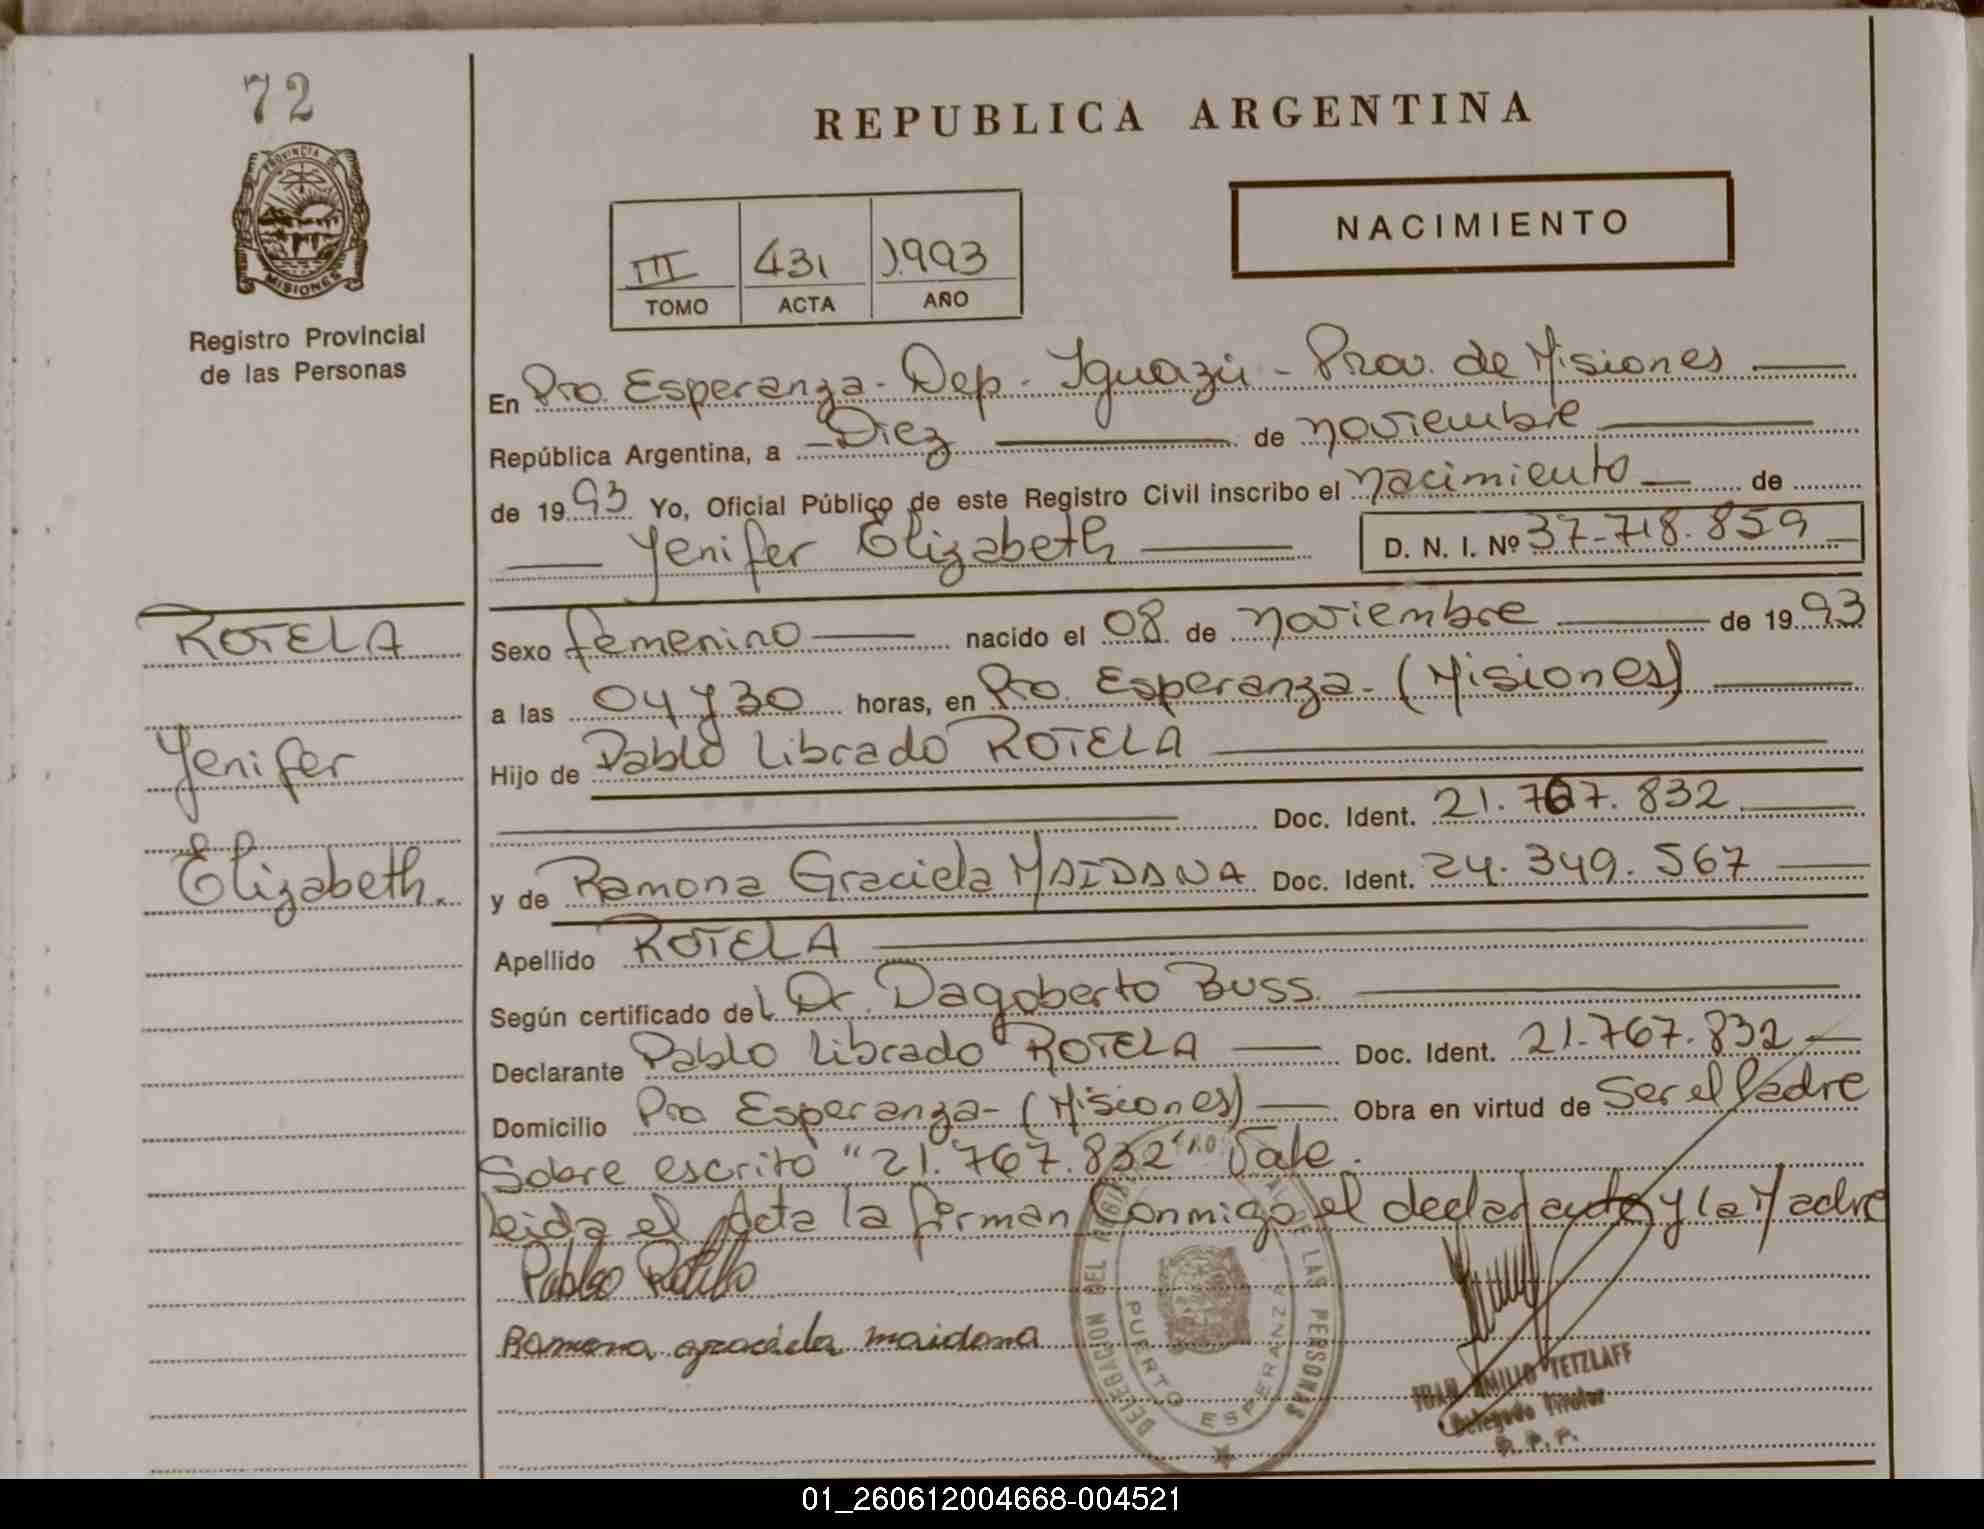 72
PROVINCIA DE
MISIONES
Registro Provincial
de las Personas
REPUBLICA ARGENTINA
NACIMIENTO
III 431 1.993
TOMO ACTA AÑO
En Pto. Esperanza - Dep. Iguazú - Prov. de Misiones
República Argentina, a Diez de noviembre
de 1993 Yo, Oficial Público de este Registro Civil inscribo el nacimiento de
Yenifer Elizabeth D. N. I. Nº 37-718.859
ROTELA
Yenifer
Elizabeth.
Sexo femenino nacido el 08 de noviembre de 1993
a las 04 y 30 horas, en Pto. Esperanza - (Misiones)
Hijo de Pablo Librado ROTELA
Doc. Ident. 21.767.832
y de Ramona Graciela MAIDANA Doc. Ident. 24.349.567
Apellido ROTELA
Según certificado del Dr. Dagoberto Buss.
Declarante Pablo Librado ROTELA Doc. Ident. 21.767.832
Domicilio Pto Esperanza - (Misiones) Obra en virtud de Ser el Padre
Sobre escrito "21.767.832" Vale.
Leida el Acta la firman Conmigo el declarante y la Madre
Pablo Rotela
Ramona graciela maidana
DELEGACION DEL REGISTRO DE LAS PERSONAS
PUERTO ESPERANZA
JUAN EMILIO TETZLAFF
Delegado Titular
R. P. P.
01_260612004668-004521